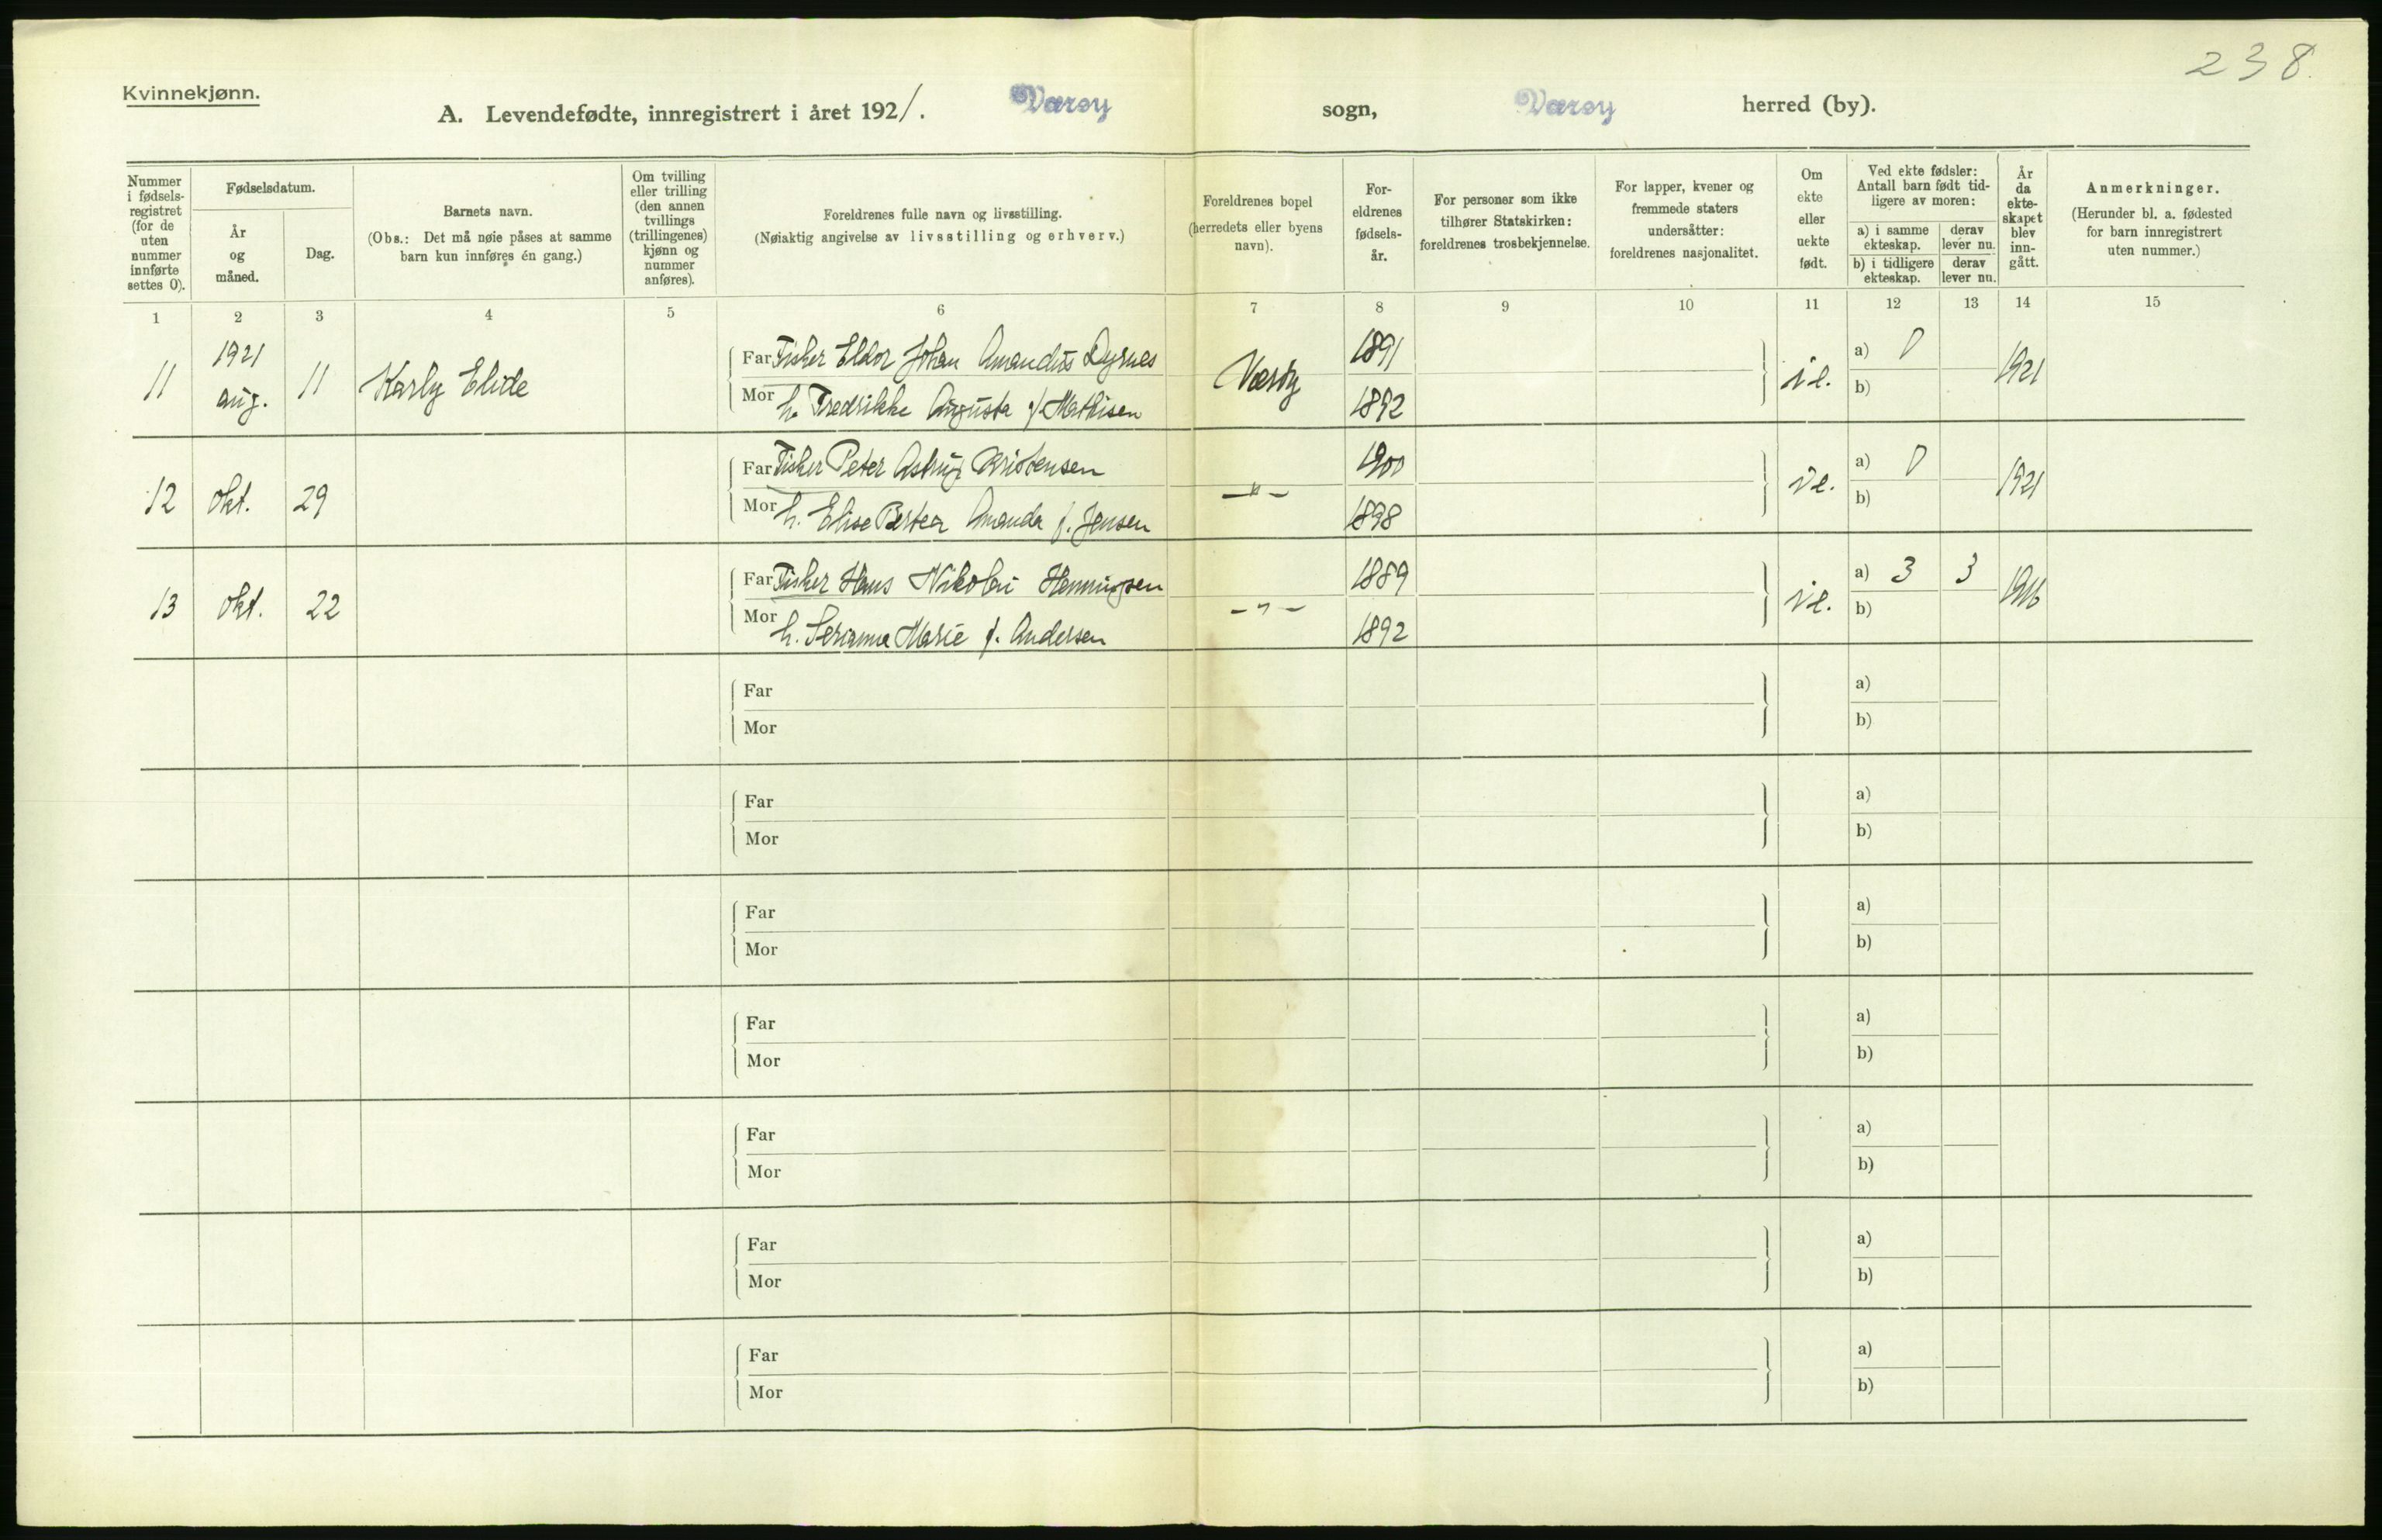 238.
Kvinnekjønn.
A. Levendefødte, innregistrert i året 1921. Værøy sogn, Værøy herred (by).
Nummer i fødsels-registret (for de uten nummer innførte settes 0).
Fødselsdatum.
År og måned.
Dag.
Barnets navn.
(Obs.: Det må nøie påses at samme barn kun innføres én gang.)
Om tvilling eller trilling (den annen tvillings (trillingenes) kjønn og nummer anføres).
Foreldrenes fulle navn og livsstilling.
(Nøiaktig angivelse av livsstilling og erhverv.)
Foreldrenes bopel (herredets eller byens navn).
For-eldrenes fødsels-år.
For personer som ikke tilhører Statskirken: foreldrenes trosbekjennelse.
For lapper, kvener og fremmede staters undersåtter: foreldrenes nasjonalitet.
Om ekte eller uekte født.
Ved ekte fødsler: Antall barn født tid-ligere av moren:
a) i samme ekteskap.
derav lever nu.
b) i tidligere ekteskap.
derav lever nu.
År da ekte-skapet blev inn-gått.
Anmerkninger.
(Herunder bl. a. fødested for barn innregistrert uten nummer.)
1 2 3 4 5 6 7 8 9 10 11 12 13 14 15
11 1921 aug. 11 Karly Elide
Far Fisker Eldor Johan Amandus Dyrnes Værøy 1891 a) 0 1921
Mor h. Fredrikke Augusta f. Mathisen 1892 b)
12 okt. 29
Far Fisker Peter Kristensen — " — 1900 a) 0 1921
Mor h. Elise Amanda f. Jensen 1898 b)
13 okt. 22
Far Fisker Hans Nikolai Henningsen — " — 1889 a) 3 3 1916
Mor h. Serianna Marie f. Andersen 1892 b)
Far a)
Mor b)
Far a)
Mor b)
Far a)
Mor b)
Far a)
Mor b)
Far a)
Mor b)
Far a)
Mor b)
Far a)
Mor b)